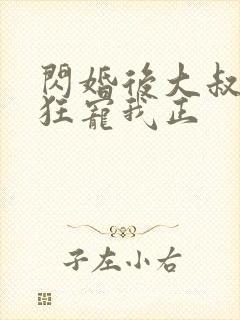 閃婚後大叔
狂寵我正
子左小右